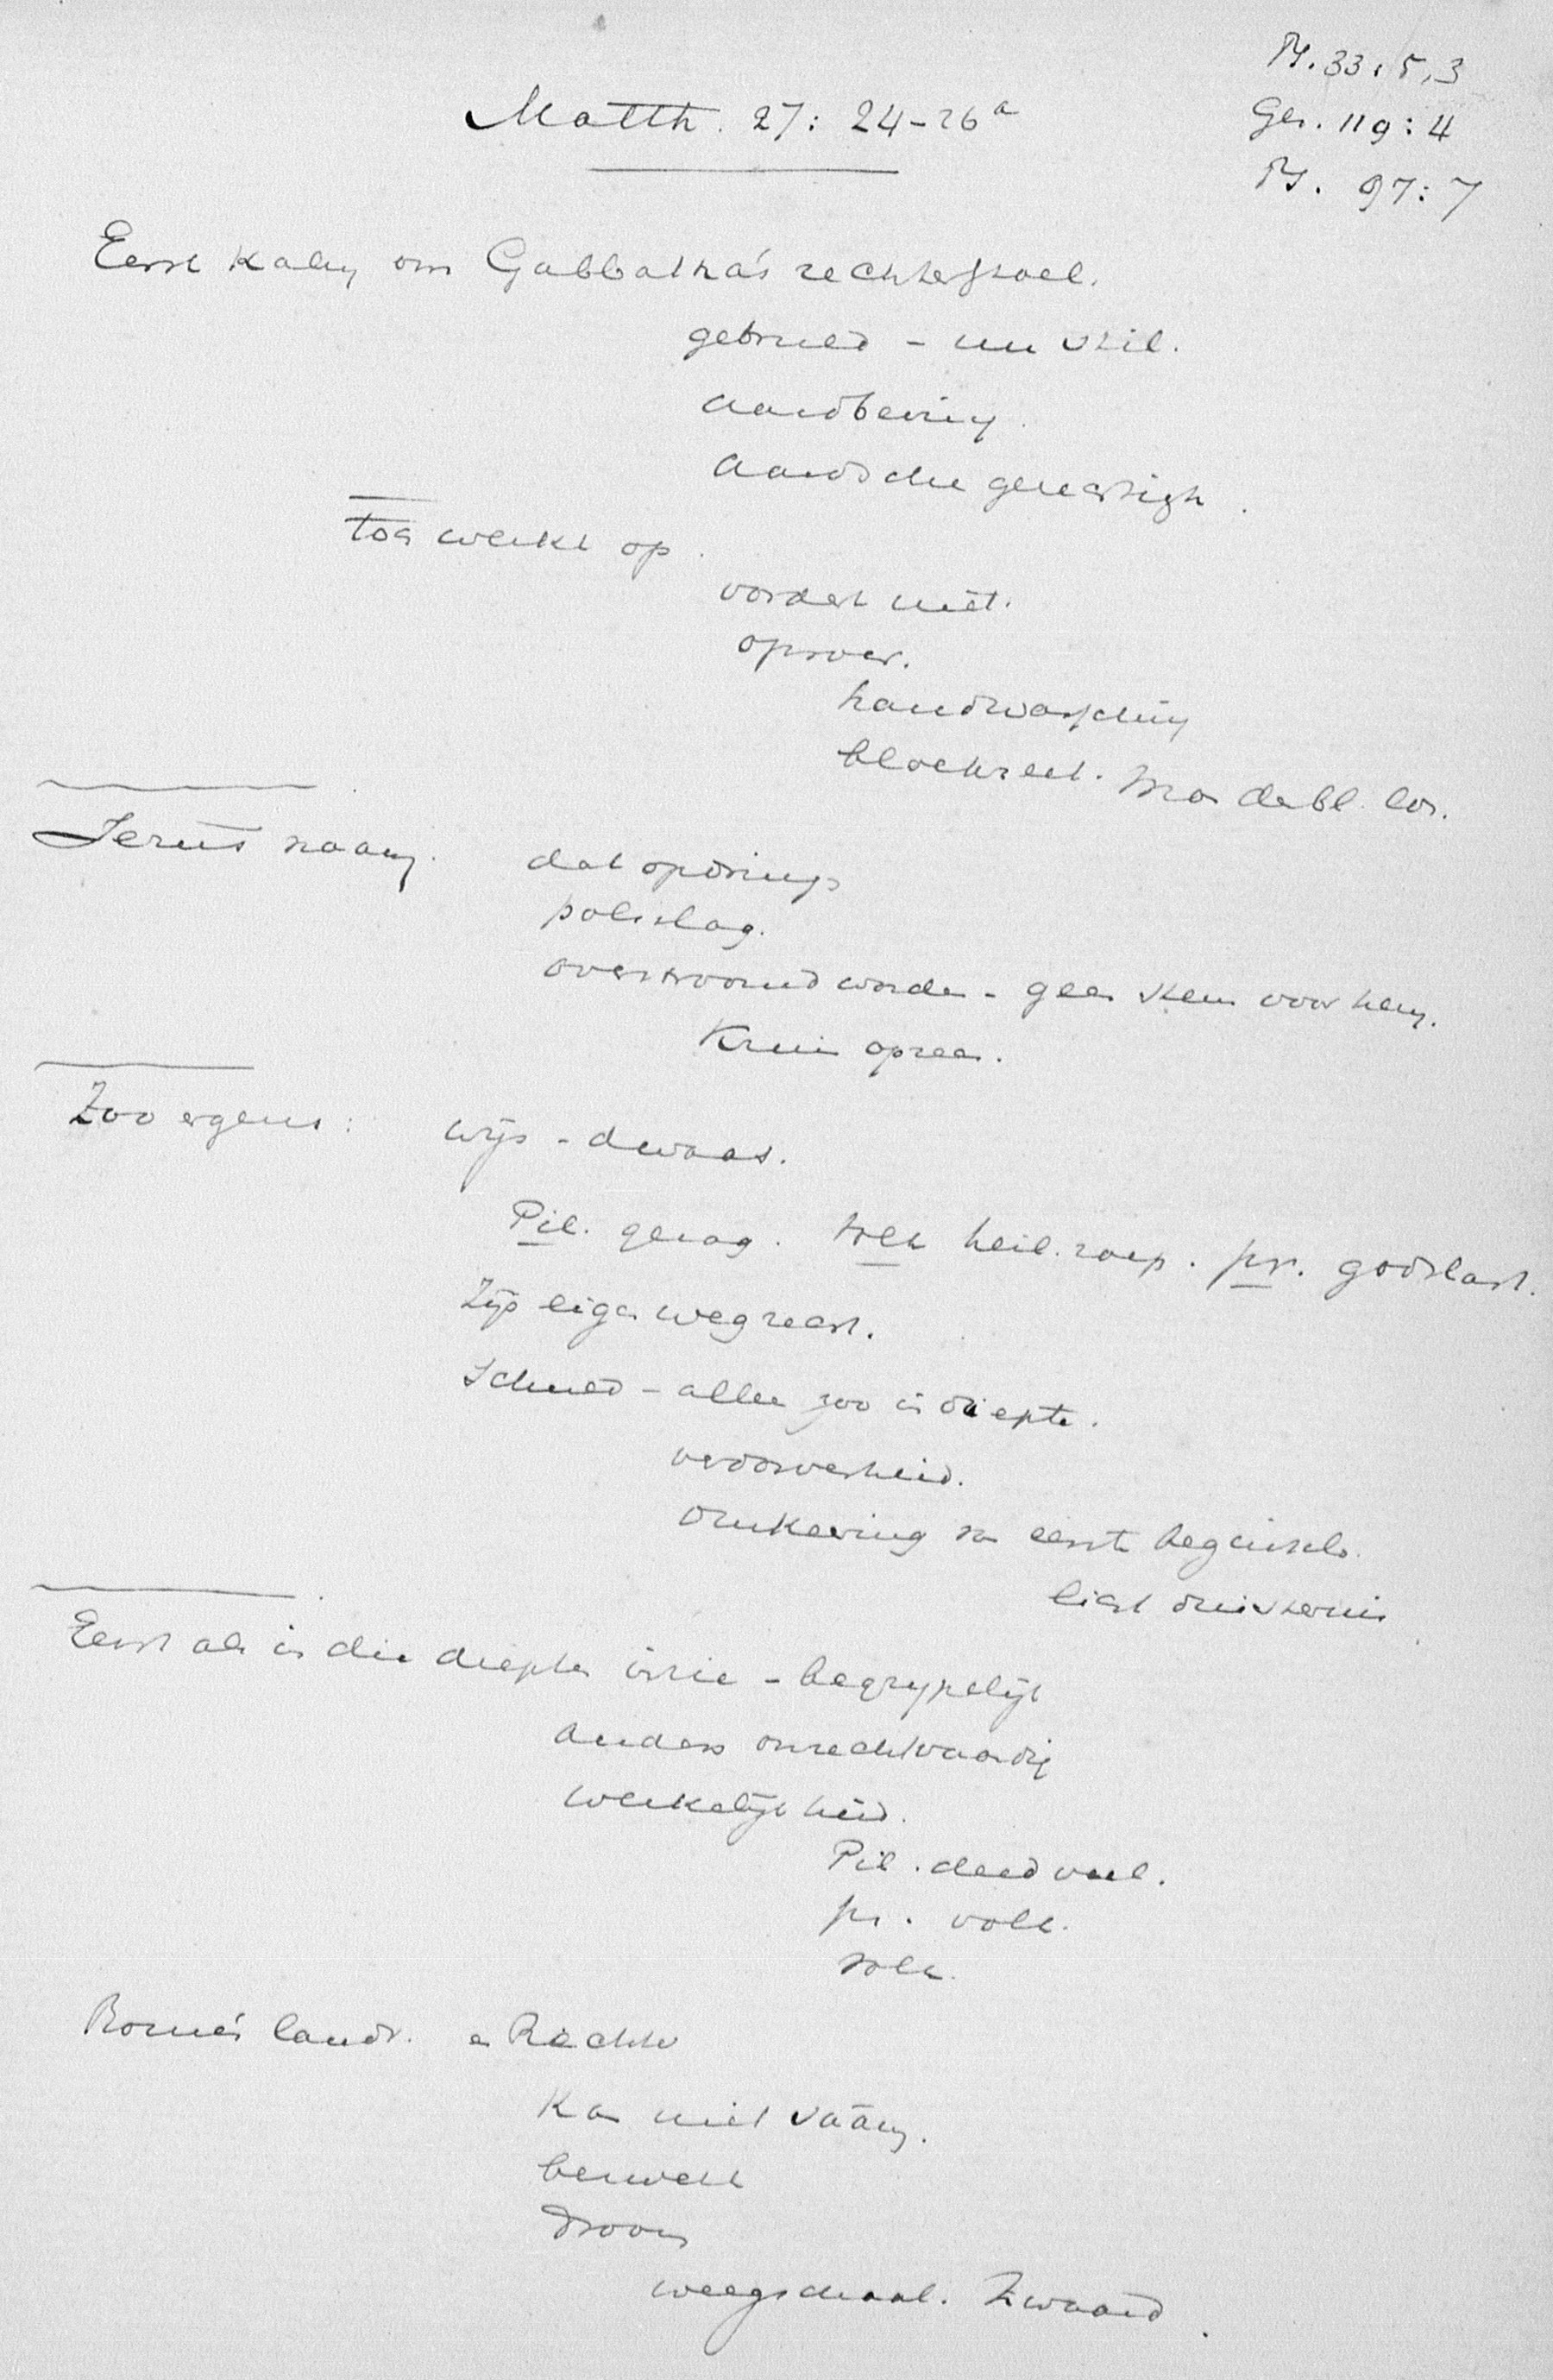 Ps. 33:5,3
Matth. 27: 24-26a
Gez. 119:4
Ps. 97:7
Eerst kalm om Gabbatha's rechterstoel.
gebruld - nu stil.
aardbeving.
aardsche gerechtigh.
toch werkt op.
vordert niet.
oproer.
handwassching
bloedraad. Bar los.
Jezus naam.
dat opdringt
polsslag.
overstroomd worden - geen stem voor hem.
Kruis oprees.
Zoo ergens:
wijs - dwaas.
Pil. gezag. volk heil. roep. pr. godslast.
Zijn eigen weg recht.
Schuld - alleen zoo in diepte.
verdorvenheid.
Omkeering van eerste beginsels.
licht duisternis
Eerst als in die diepten inzie - begrijpelijk
Anders onrechtvaardig
Werkelijkheid.
Pil. deed veel.
pr. volk.
volk.
Rome's landv. en Rechter
Kan niet
bewust
droom
weegschaal. Zwaard.